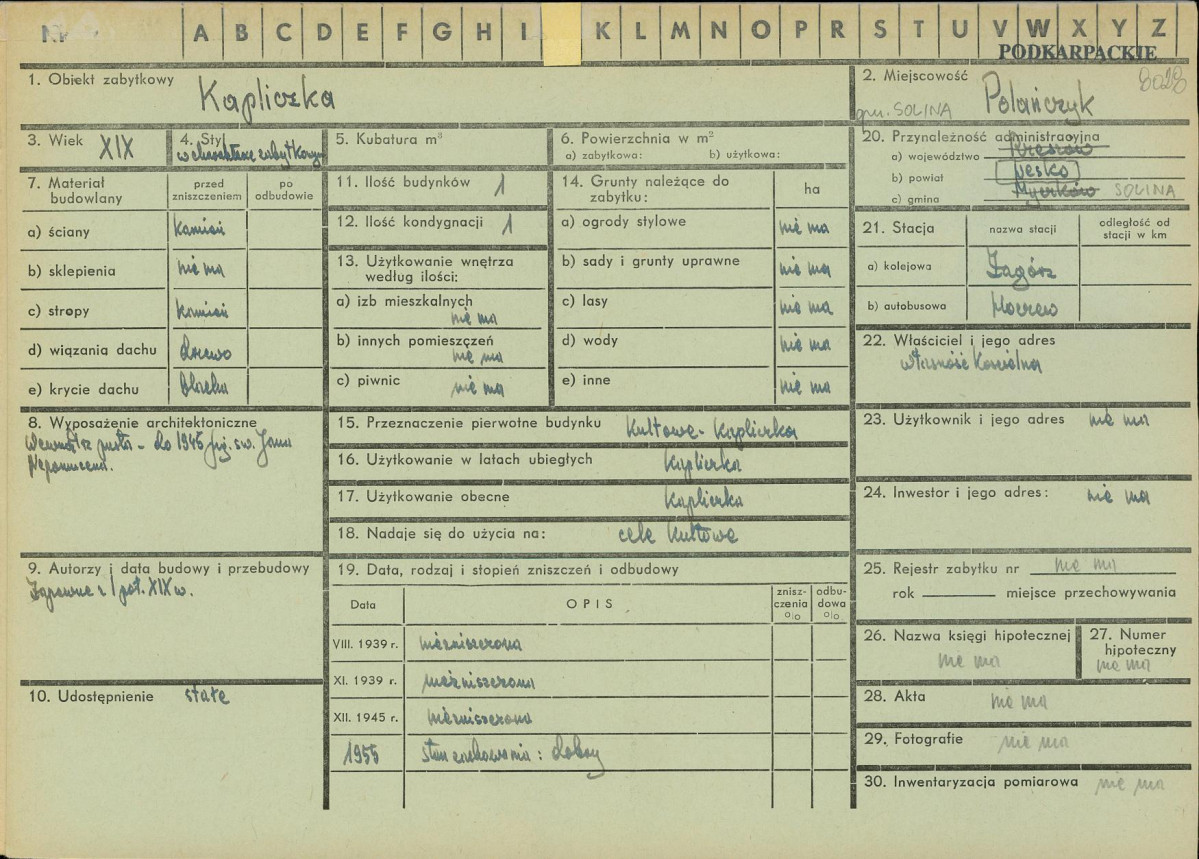 Nr A B C D E F G H I K L M N O P R S T U V W X Y Z
PODKARPACKIE
1. Obiekt zabytkowy Kapliczka
2. Miejscowość 8028
gm. SOLINA Polańczyk
3. Wiek XIX
4. Styl w charakterze zabytkowym
5. Kubatura m³
6. Powierzchnia w m²
a) zabytkowa: b) użytkowa:
20. Przynależność administracyjna
a) województwo Rzeszów
b) powiat Lesko
c) gmina SOLINA
7. Materiał budowlany
przed zniszczeniem
po odbudowie
a) ściany kamień
b) sklepienia nie ma
c) stropy kamień
d) wiązania dachu drzewo
e) krycie dachu blacha
11. Ilość budynków 1
12. Ilość kondygnacji 1
13. Użytkowanie wnętrza
według ilości:
a) izb mieszkalnych
nie ma
b) innych pomieszczeń
nie ma
c) piwnic nie ma
14. Grunty należące do
zabytku:
ha
a) ogrody stylowe nie ma
b) sady i grunty uprawne nie ma
c) lasy nie ma
d) wody nie ma
e) inne nie ma
21. Stacja
nazwa stacji
odległość od
stacji w km
a) kolejowa Zagórz
b) autobusowa Hoczew
22. Właściciel i jego adres
własność kościelna
8. Wyposażenie architektoniczne
Wewnątrz pusta - do 1945 fig. św. Jana
Nepomucena.
15. Przeznaczenie pierwotne budynku Kultowe - Kapliczka
16. Użytkowanie w latach ubiegłych Kapliczka
17. Użytkowanie obecne Kapliczka
18. Nadaje się do użycia na: cele Kultowe
23. Użytkownik i jego adres nie ma
24. Inwestor i jego adres: nie ma
9. Autorzy i data budowy i przebudowy
Zapewne z I poł. XIX w.
10. Udostępnienie stałe
19. Data, rodzaj i stopień zniszczeń i odbudowy
Data
OPIS
znisz-
czenia
%
odbu-
dowa
%
VIII. 1939 r. niezniszczona
XI. 1939 r. niezniszczona
XII. 1945 r. niezniszczona
1955 stan zachowania: dobry
25. Rejestr zabytku nr nie ma
rok miejsce przechowywania
26. Nazwa księgi hipotecznej
nie ma
27. Numer
hipoteczny
nie ma
28. Akta nie ma
29. Fotografie nie ma
30. Inwentaryzacja pomiarowa nie ma